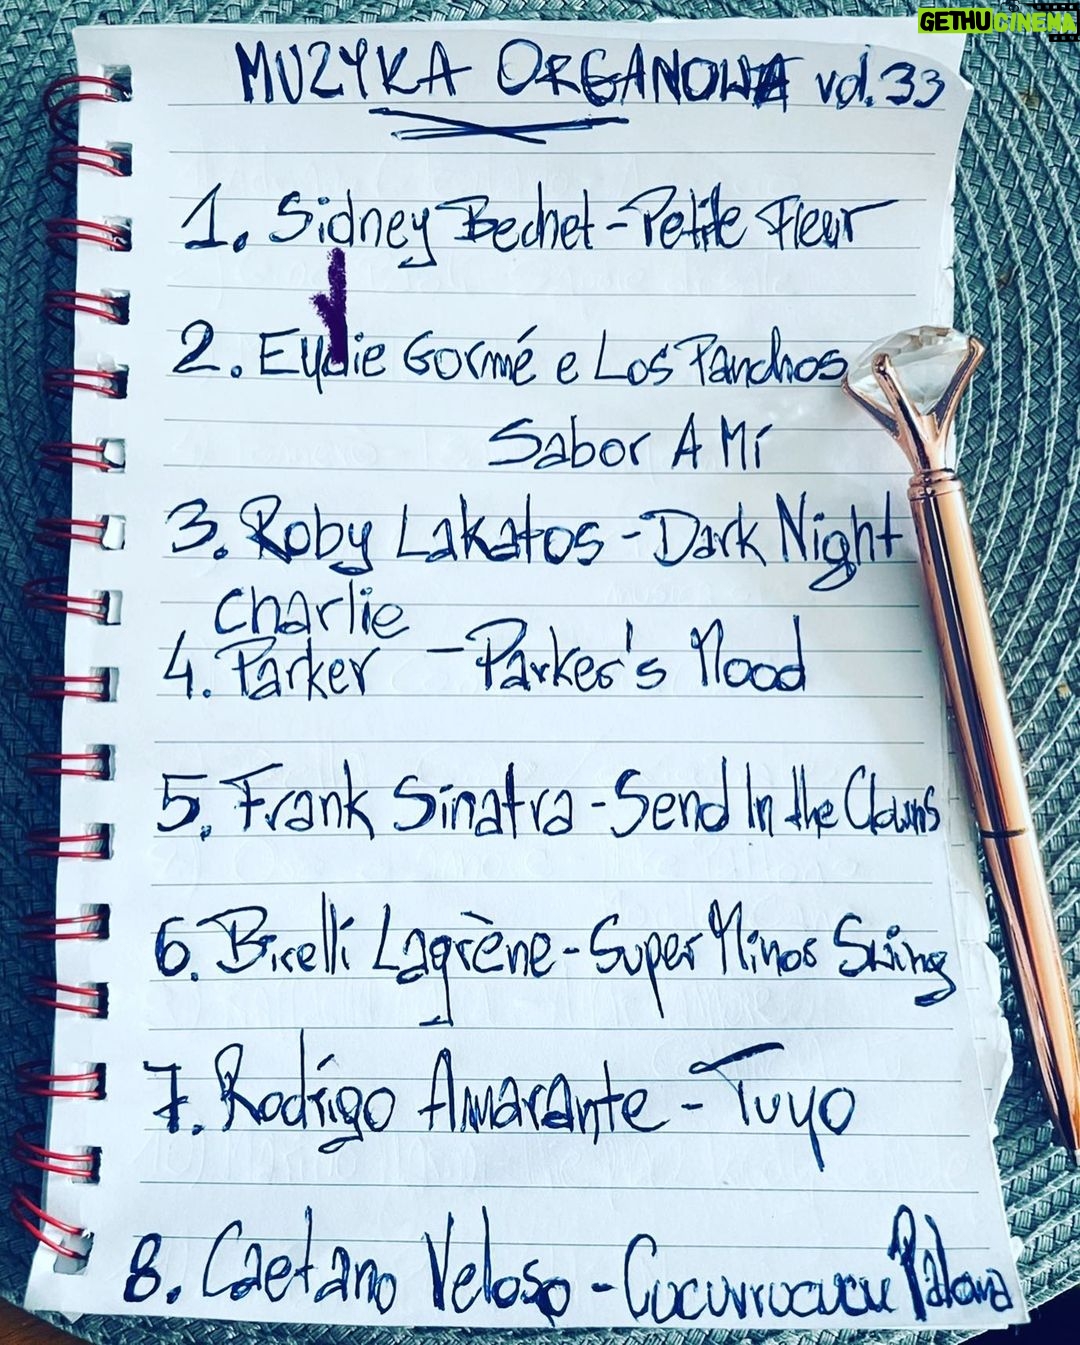 GETHUCINEMA
MUZYKA ORGANOWA vol. 33
1. Sidney Bechet - Petite Fleur
2. Eydie Gormé e Los Panchos
Sabor A Mí
3. Roby Lakatos - Dark Night
Charlie
4. Parker - Parker's Mood
5. Frank Sinatra - Send In the Clowns
6. Birelli Lagrène - Super Minor Swing
7. Rodrigo Amarante - Tuyo
8. Caetano Veloso - Cucurrucucu Paloma